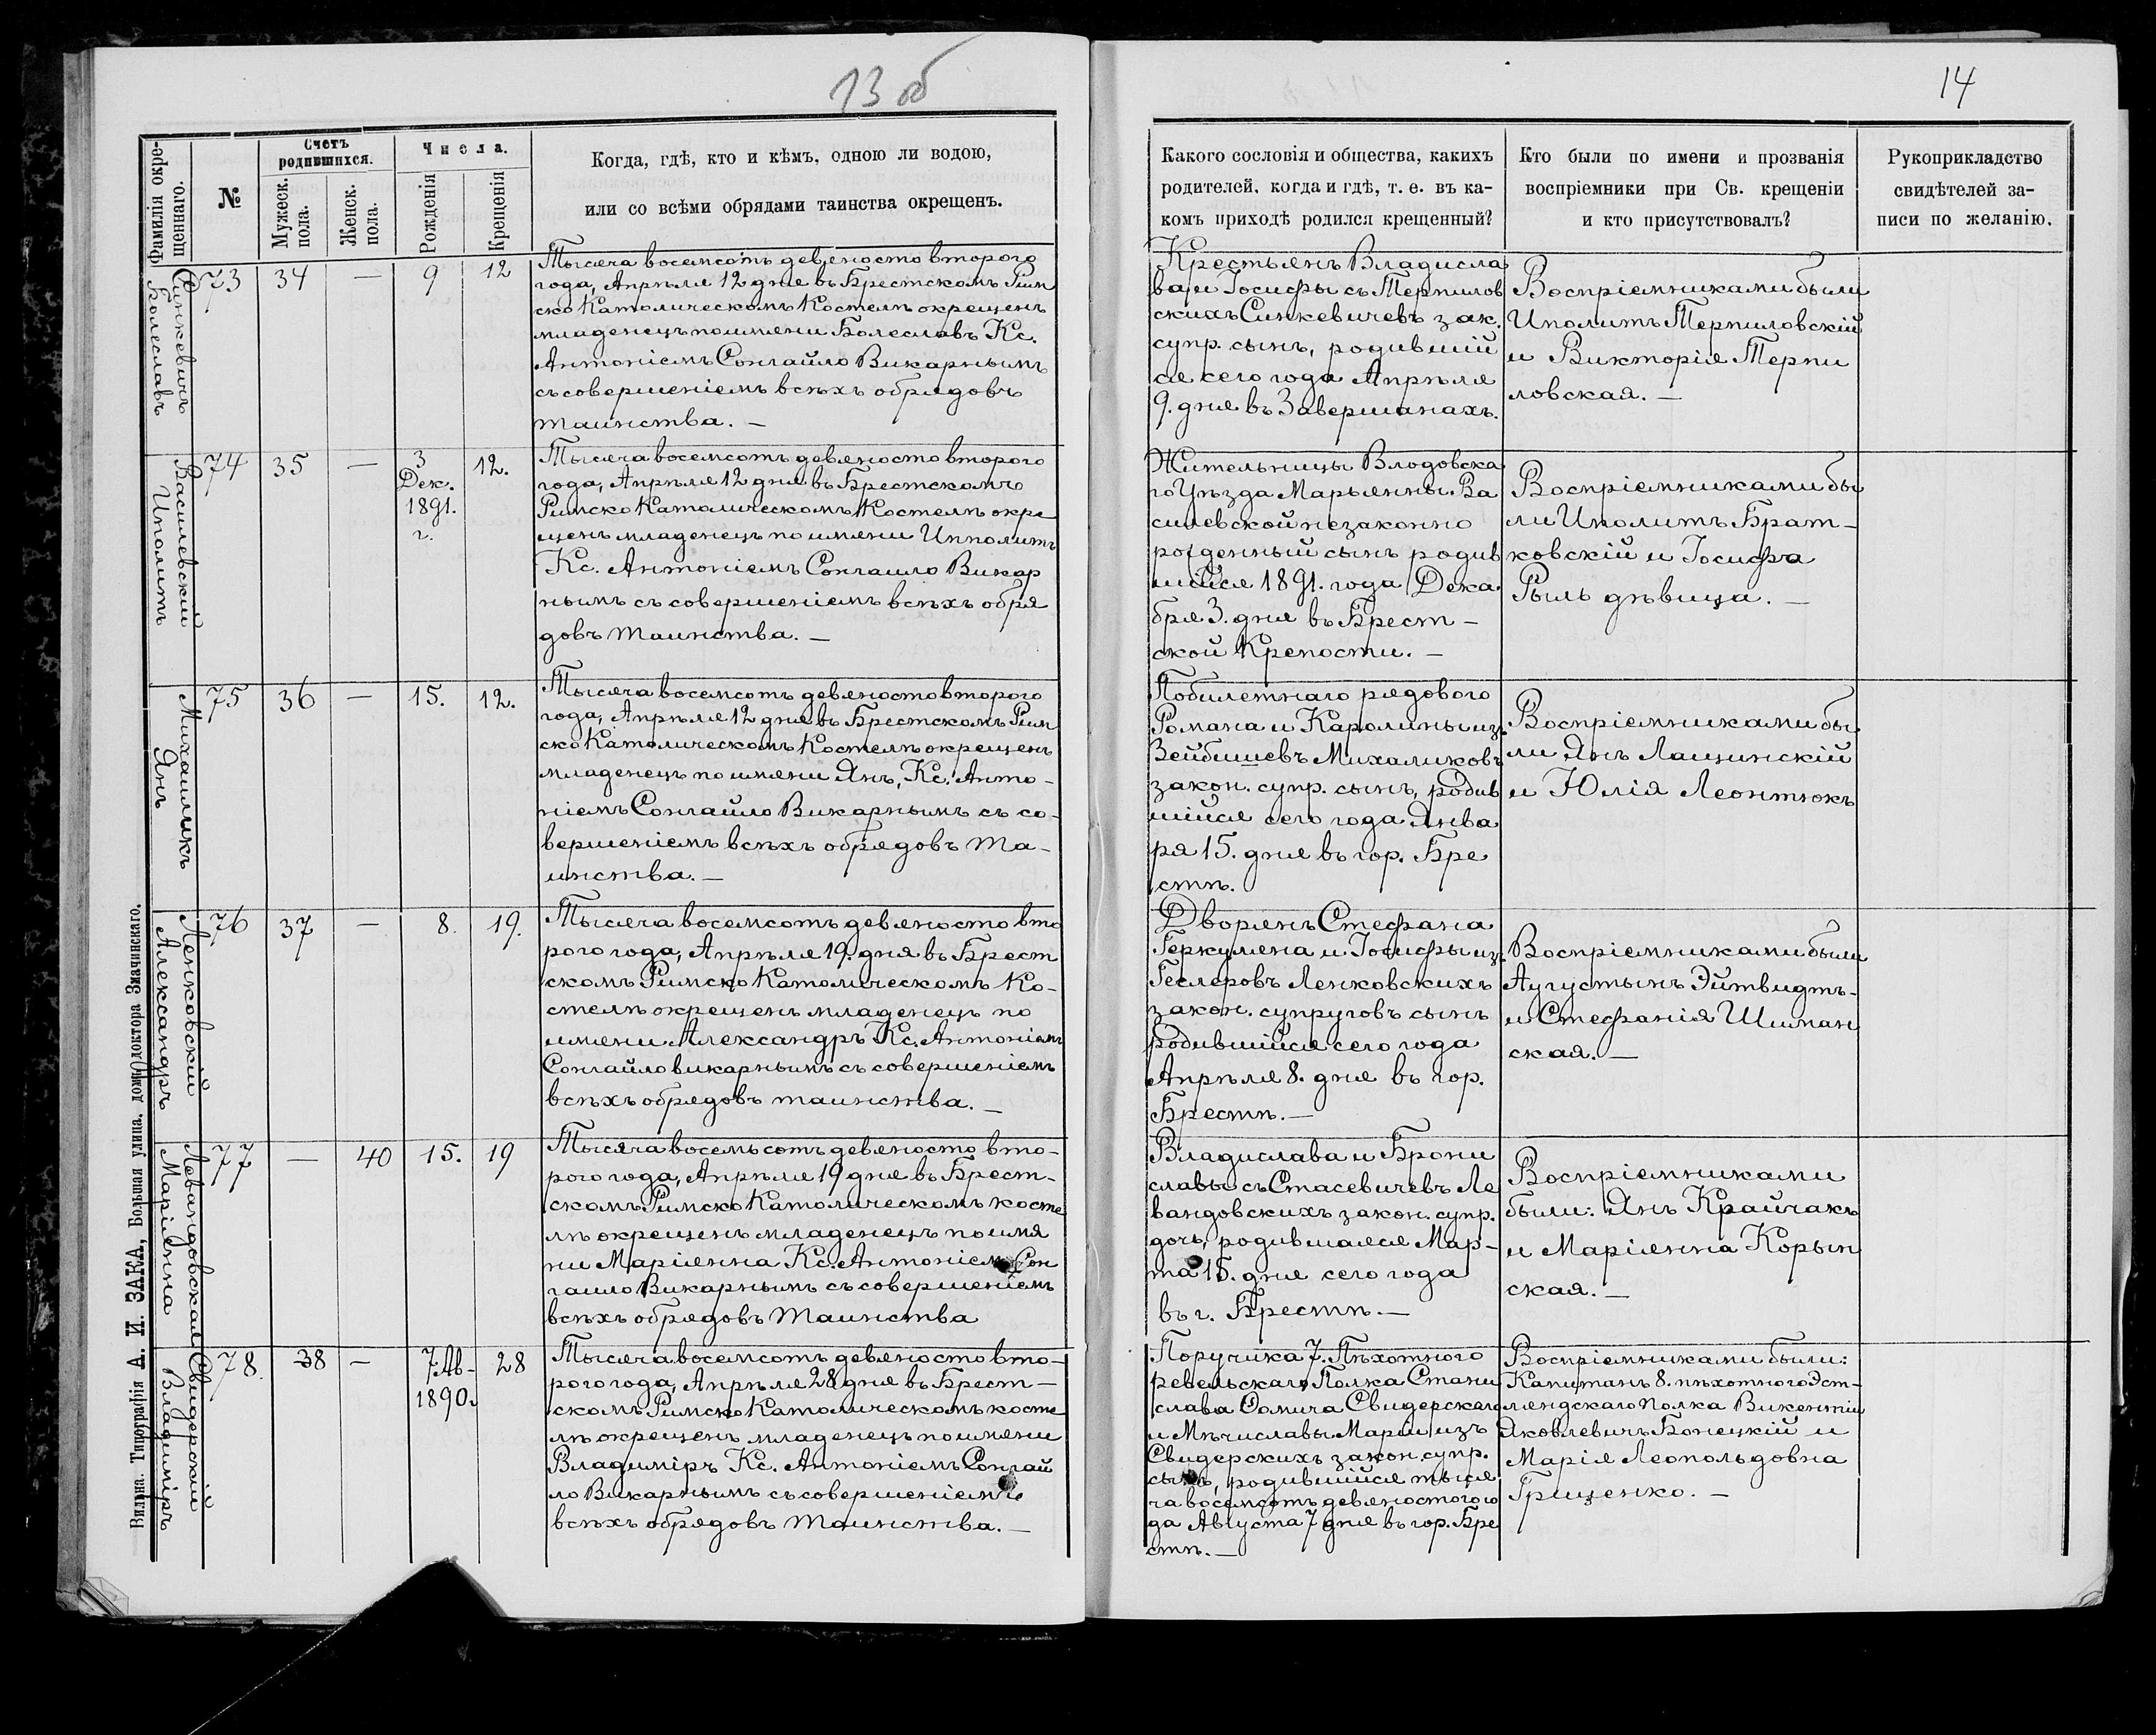 13 об
Фамилія окре-
щеннаго.
№
Счетъ
родившихся.
Мужеск.
пола.
Женск.
пола.
Числа.
Рожденія
Крещенія
Когда, гдѣ, кто и кѣмъ, одною ли водою,
или со всѣми обрядами таинства окрещенъ.
Синкевичъ
Болеславъ
73
34
—
9
12
Тысяча восемсотъ девяносто второго
года, Апрѣля 12 дня въ Брестскомъ Рим
ско Католическомъ Костелѣ окрещенъ
младенецъ по имени Болеславъ Кс.
Антоніемъ Сонгайло Викарнымъ
съ совершеніемъ всѣхъ обрядовъ
таинства. —
Василевскій
Иполитъ
74
35
—
3
Дек.
1891.
г.
12.
Тысяча восемсотъ девяносто второго
года, Апрѣля 12 дня въ Брестскомъ
Римско Католическомъ Костелѣ окре
щенъ младенецъ по имени Ипполитъ
Кс. Антоніемъ Сонгаило Викар
нымъ съ совершеніемъ всѣхъ обря
довъ таинства. —
Михаликъ
Янъ
75
36
—
15.
12.
Тысяча восемсотъ девяносто второго
года, Апрѣля 12 дня въ Брестскомъ Рим
ско Католическомъ Костелѣ окрещенъ
младенецъ по имени Янъ, Кс. Анто-
ніемъ Сонгайло Викарнымъ съ со-
вершеніемъ всѣхъ обрядовъ Та-
инства. —
Ленковскій
Александръ
76
37
—
8.
19.
Тысяча восемсотъ девяносто вто
рого года, Апрѣля 19. дня въ Брест
скомъ Римско Католическомъ Ко-
стелѣ окрещенъ младенецъ по
имени Александръ Кс. Антоніемъ
Сонгайло викарнымъ съ совершеніемъ
всѣхъ обрядовъ таинства. —
Левандовская
Маріянна
77
—
40
15.
19
Тысяча восемьсотъ девяносто вто-
рого года, Апрѣля 19 дня въ Брест-
скомъ Римско Католическомъ косте
лѣ окрещенъ младенецъ по имя
ни Маріянна Кс. Антоніем Сон
гаило Викарнымъ съ совершеніемъ
всѣхъ обрядовъ Таинства
Свидерскій
Владиміръ
78.
38
—
7. Ав-
1890.
28
Тысяча восемсотъ девяносто вто-
рого года, Апрѣля 28 дня въ Брест-
скомъ Римско Католическомъ косте
лѣ окрещенъ младенецъ по имени
Владиміръ Кс. Антоніемъ Сонгай
ло Викарнымъ съ совершеніемъ
всѣхъ обрядовъ Таинства. —
Вильна. Типографія А. И. ЗАКА, Большая улица, домъ доктора Змачинскаго.
14
Какого сословія и общества, какихъ
родителей, когда и гдѣ, т. е. въ ка-
комъ приходѣ родился крещенный?
Кто были по имени и прозванія
воспріемники при Св. крещеніи
и кто присутствовалъ?
Рукоприкладство
свидѣтелей за-
писи по желанію.
Крестьянъ Владисла
ва и Іосифы съ Терпилов
скихъ Синкевичевъ зак.
супр. сынъ, родившій
ся сего года Апрѣля
9. дня въ Завершанахъ.
Воспріемниками были
Иполитъ Терпиловскій
и Викторія Терпи
ловская. —
Жительницы Влодовска
го Уѣзда Марьянны Ва
силевской незаконно
рожденный сынъ родив
шійся 1891. года Дека
бря 3. дня въ Брест-
ской Крепости. —
Воспріемниками бы
ли Иполитъ Брат-
ковскій и Іосифа
Рыль дѣвица. —
Побилетнаго рядового
Романа и Каролины изъ
Зейбишевъ Михаликовъ
закон. супр. сынъ, родив
шійся сего года Янва
ря 15. дня въ гор. Бре
стѣ.
Воспріемниками бы
ли Янъ Лащинскій
и Юлія Леонтюкъ
Дворянъ Стефана
Геркулена и Іосифы изъ
Геслеровъ Ленковскихъ
закон. супруговъ сынъ
родившійся сего года
Апрѣля 8. дня въ гор.
Брестѣ. —
Воспріемниками были
Аугустынъ Эйтвидтъ-
и Стефанія Шиман
ская. —
Владислава и Брони
славы съ Стасевичевъ Ле
вандовскихъ закон. супр.
дочь, родившаяся Мар-
та 15. дня сего года
въ г. Брестѣ. —
Воспріемниками
были: Янъ Крайчакъ
и Маріянна Корын
ская. —
Поручика 7. Пѣхотного
ревельскаго Полка Стани
слава Фомича Свидерскаго
и Мѣчиславы Маріи изъ
Свидерскихъ закон. супр.
сынъ, родившійся тыся
ча восемсотъ девяностого го
да Августа 7 дня въ гор. Бре
стѣ. —
Воспріемниками были:
Капитанъ 8. пѣхотного Эст-
ляндскаго Полка Викентій
Яковлевичъ Бонецкій и
Марія Леопольдовна
Гриценко. —